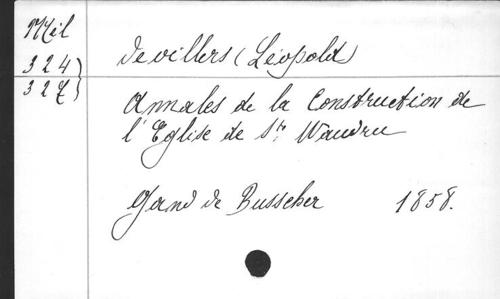 Mél
324}
327}
Devillers (Léopold)
Annales de la Construction de
l'Eglise de Ste Waudru
Gand de Busscher 1858.